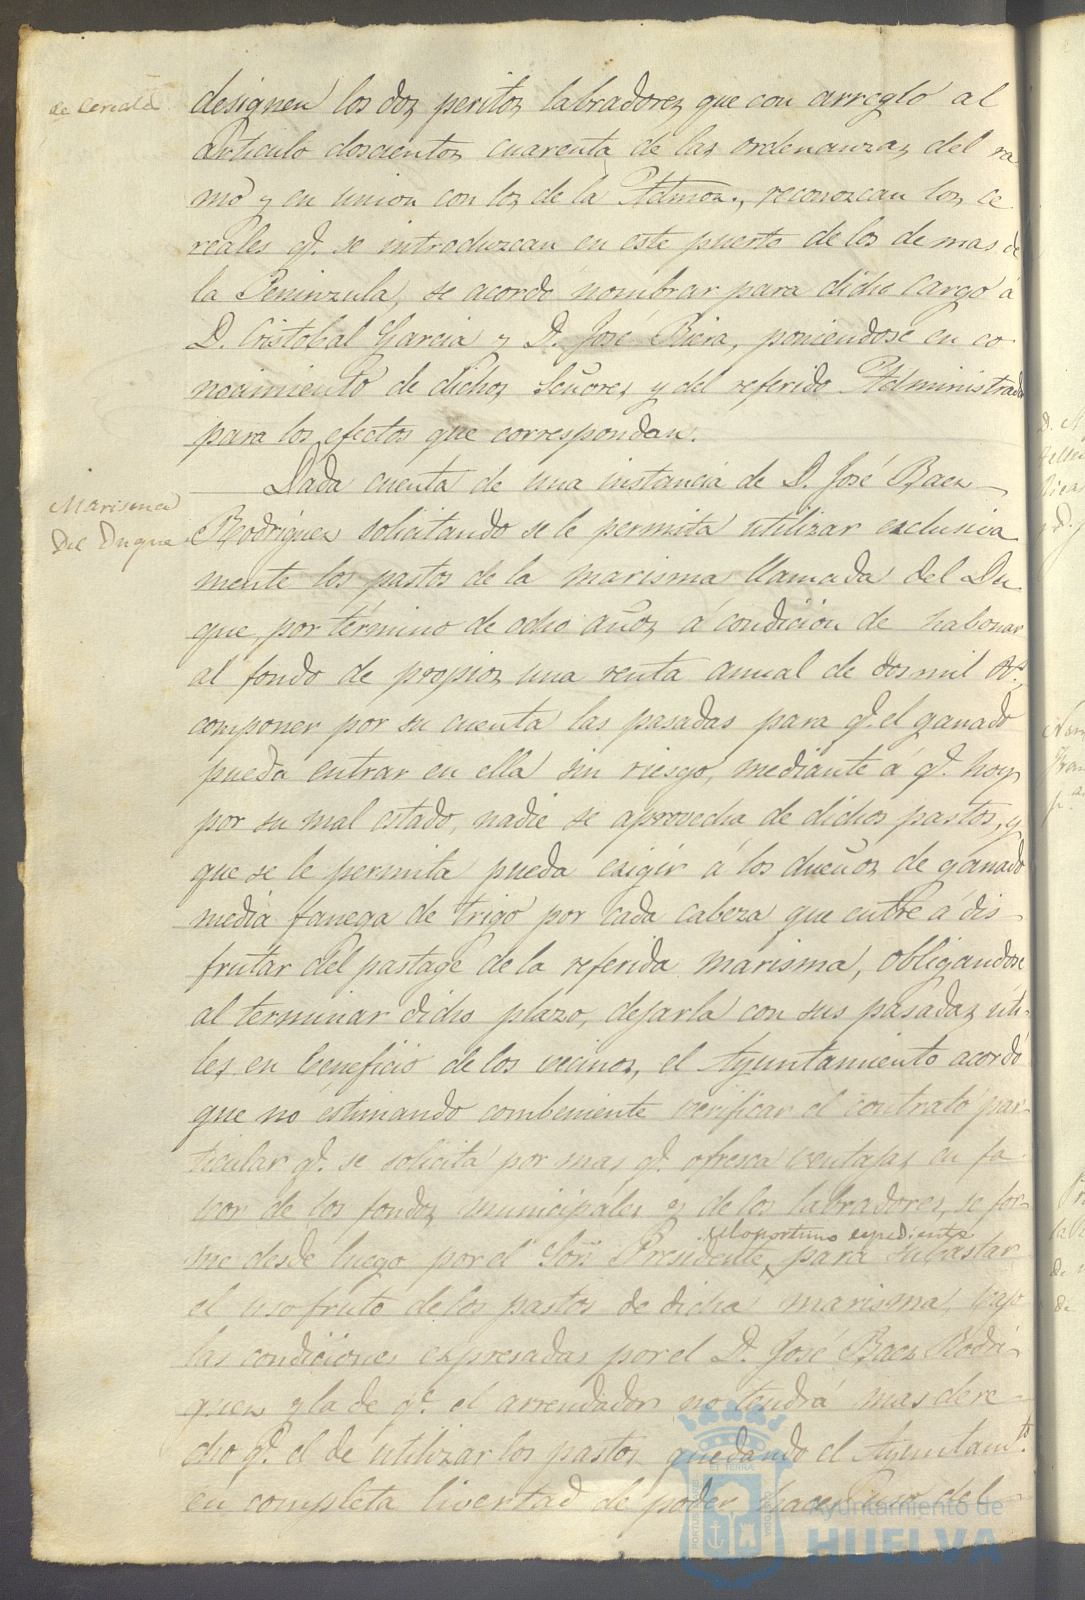 de Cereales
designen los dos peritos labradores que con arreglo al
articulo doscientos cuarenta de las ordenanzas del ra
mo y en union con los de la Admon., reconozcan los ce
reales q.e se introduzcan en este puerto de los demas de
la Peninzula, se acordó nombrar para dicho cargo á
D. Cristobal Garcia y D. José Riera, poniendose en co-
nocimiento de dichos Señores y del referido Administrador
para los efectos que correspondan.
Marisma
del Duque
Dada cuenta de una instancia de D. José Baez
Rodriguez solicitando se le permita utilizar exclusiva
mente los pastos de la marisma llamada del Du
que por término de ocho años á condicion de habonar
al fondo de propios una renta anual de dos mil r.s,
componer por su cuenta las pasadas para q.e el ganado
pueda entrar en ella sin riesgo, mediante á q.e hoy
por su mal estado, nadie se aprovecha de dichos pastos, y
que se le permita pueda exigir á los dueños de ganado
media fanega de trigo por cada cabeza que entre á dis-
frutar del pastage de la referida marisma, obligandose
al terminar dicho plazo, dejarla con sus pasadas úti-
les en beneficio de los vecinos, el Ayuntamiento acordó
que no estimando combeniente verificar el contrato par-
ticular q.e se solicita por mas q.e ofresca ventajas en fa-
vor de los fondos municipales y de los labradores, se for-
el oportuno espediente
me desde luego por el Sor. Presidente, para subastar
el usofruto de los pastos de dicha marisma, bajo
las condiciones expresadas por el D. José Baez Rodri-
guez y la de q.e el arrendador no tendrá mas dere-
cho q.e el de utilizar los pastos, quedando el Ayuntam.to
en completa livertad de poder hacer uso del
Ayuntamiento de
HUELVA